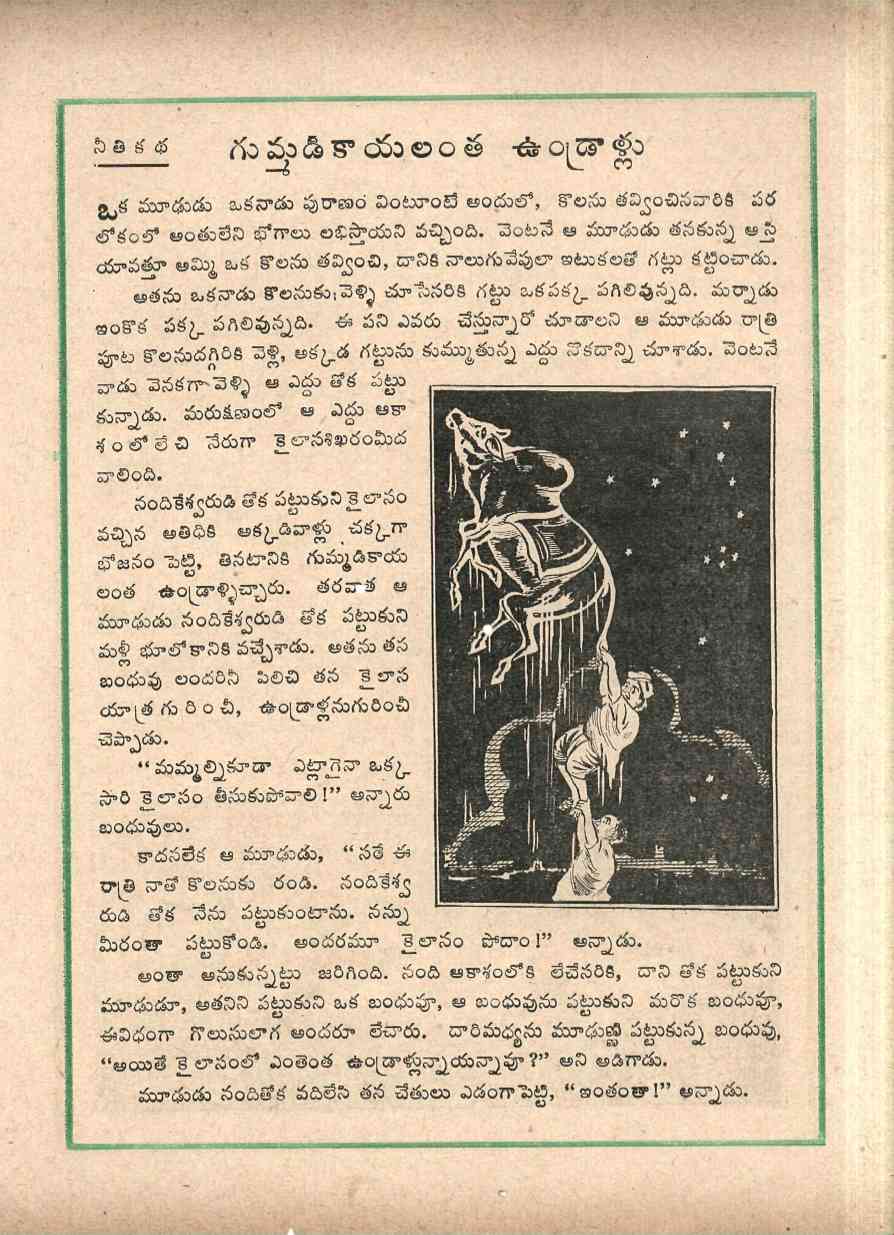 నీతికథ
గుమ్మడికాయలంత ఉండ్రాళ్లు
ఒక మూఢుడు ఒకనాడు పురాణం వింటూంటే అందులో, కొలను తవ్వించినవారికి పర
లోకంలో అంతులేని భోగాలు లభిస్తాయని వచ్చింది. వెంటనే ఆ మూఢుడు తనకున్న ఆస్తి
యావత్తూ అమ్మి ఒక కొలను తవ్వించి, దానికి నాలుగువేపులా ఇటుకలతో గట్లు కట్టించాడు.
అతను ఒకనాడు కొలనుకు వెళ్ళి చూసేసరికి గట్టు ఒకపక్క పగిలివున్నది. మర్నాడు
ఇంకొక పక్క పగిలివున్నది. ఈ పని ఎవరు చేస్తున్నారో చూడాలని ఆ మూఢుడు రాత్రి
పూట కొలనుదగ్గిరికి వెళ్లి, అక్కడ గట్టును కుమ్ముతున్న ఎద్దు నొకదాన్ని చూశాడు. వెంటనే
వాడు వెనకగా వెళ్ళి ఆ ఎద్దు తోక పట్టు
కున్నాడు. మరుక్షణంలో ఆ ఎద్దు ఆకా
శంలో లేచి నేరుగా కైలాసశిఖరంమీద
వాలింది.
నందికేశ్వరుడి తోక పట్టుకుని కైలాసం
వచ్చిన అతిథికి అక్కడివాళ్లు చక్కగా
భోజనం పెట్టి, తినటానికి గుమ్మడికాయ
లంత ఉండ్రాళ్ళిచ్చారు. తరవాత ఆ
మూఢుడు నందికేశ్వరుడి తోక పట్టుకుని
మళ్లీ భూలోకానికి వచ్చేశాడు. అతను తన
బంధువు లందరినీ పిలిచి తన కైలాస
యాత్ర గురించీ, ఉండ్రాళ్లనుగురించీ
చెప్పాడు.
“మమ్మల్నికూడా ఎట్లాగైనా ఒక్క
సారి కైలాసం తీసుకుపోవాలి!” అన్నారు
బంధువులు.
కాదనలేక ఆ మూఢుడు, “సరే ఈ
రాత్రి నాతో కొలనుకు రండి. నందికేశ్వ
రుడి తోక నేను పట్టుకుంటాను. నన్ను
మీరంతా పట్టుకోండి. అందరమూ కైలాసం పోదాం!” అన్నాడు.
అంతా అనుకున్నట్టు జరిగింది. నంది ఆకాశంలోకి లేచేసరికి, దాని తోక పట్టుకుని
మూఢుడూ, అతనిని పట్టుకుని ఒక బంధువూ, ఆ బంధువును పట్టుకుని మరొక బంధువూ,
ఈవిధంగా గొలుసులాగ అందరూ లేచారు. దారిమధ్యను మూఢుణ్ణి పట్టుకున్న బంధువు,
“అయితే కైలాసంలో ఎంతెంత ఉండ్రాళ్లున్నాయన్నావూ?” అని అడిగాడు.
మూఢుడు నందితోక వదిలేసి తన చేతులు ఎడంగాపెట్టి, “ఇంతంతా!” అన్నాడు.